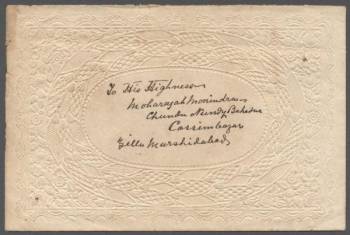 To His Highness
Moharajah Monindra
Chundra Nundy Bahadur
Cossimbazar
Zilla Murshidabad